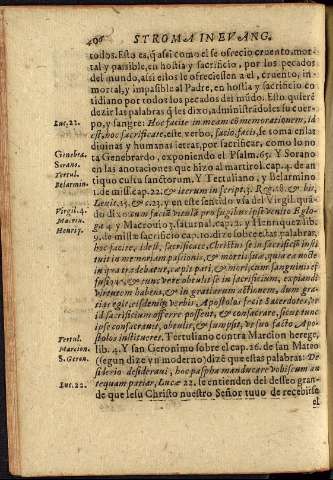 406 STROMA IN EVANG.
todos. Esto es, q̃ assi como el se ofrecio cruento, mor-
tal y passible, en hostia y sacrificio, por los pecados
del mundo, assi ellos le ofreciessen a el, cruento, in-
mortal, y impasible al Padre, en hostia y sacrificio co
tidiano por todos los pecados del mũdo. Esto quiere
dezir las palabras q̃ les dixo, administrãdoles su cuer-
Luc. 22. po, y sangre: Hoc facite in meam cõmemorationem, id
est, hoc sacrificare, este verbo, facio, facis, se toma en las
diuinas y humanas letras, por sacrificar, como lo no
Genebra. ta Genebrardo, exponiendo el Psalm. 65. Y Sorano
Sorano. en las anotaciones que hizo al martirol. cap. 4. de an
Tertul. tiquo cultu sanctorum. Y Tertuliano, y Belarmino
Belarmin. 1. de miss. cap. 22. & iterum in script. 3. Reg. 18. & bis,
Leuit. 15. & c. 23. y en este sentido vsa del Virgil. quã-
Virgil. 4. do dixo cum faciã vitula pro frugibus ipse venito Eglo-
Macrin. ga 4. y Macrouio, 3. saturnal. cap. 2. y Henriquez lib.
Henriq. 9. de missæ sacrificio cap. 10. dize sobre estas palabras,
hoc facite, id est, sacrificate, Christus se in sacrificiũ insti
tuit in memoriam passionis, & mortis suæ, quia ea nocte
in qua tradebatur, cæpit pati, & mori cum sanguinis ef
fusione, & tunc vere obtulit se in sacrificium, expiandi
virtutem habens, & in gratiarum actionem, dum gra-
tias egit, eisdemq́; verbis Apostolos fecit Sacerdotes, vt
id sacrificium offerre possent, & consecrare, sicut tunc
ipse consecrauit, obtulit, & sumpsit, vt suo facto Apo-
Tertul. stolos instrueret. Tertuliano contra Marcion herege,
Marcion. lib. 4. Y san Geronimo sobre el cap. 26. de san Mateo
S. Geron. (segun dize vn moderno) dizẽ que estas palabras: De
siderio desideraui, hoc pascha manducare vobiscum an
Luc. 22. tequam patiar, Lucæ 22. le entienden del desseo gran-
de que Iesu Christo nuestro Señor tuuo de recebirse
el